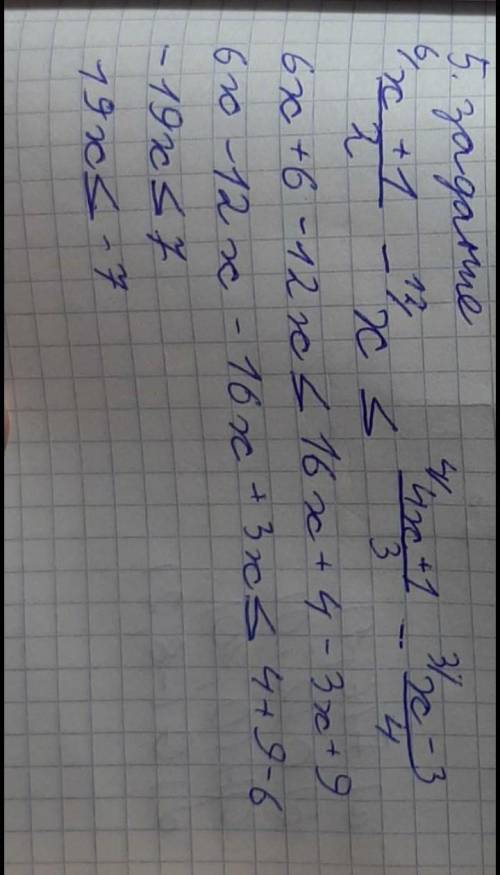 5. задание
6/ x+1/2 - 12/ x ≤ 4/ 4x+1/3 - 3/ x-3/4
6x+6-12x ≤ 16x+4-3x+9
6x-12x-16x+3x ≤ 4+9-6
-19x ≤ 7
19x ≤ -7